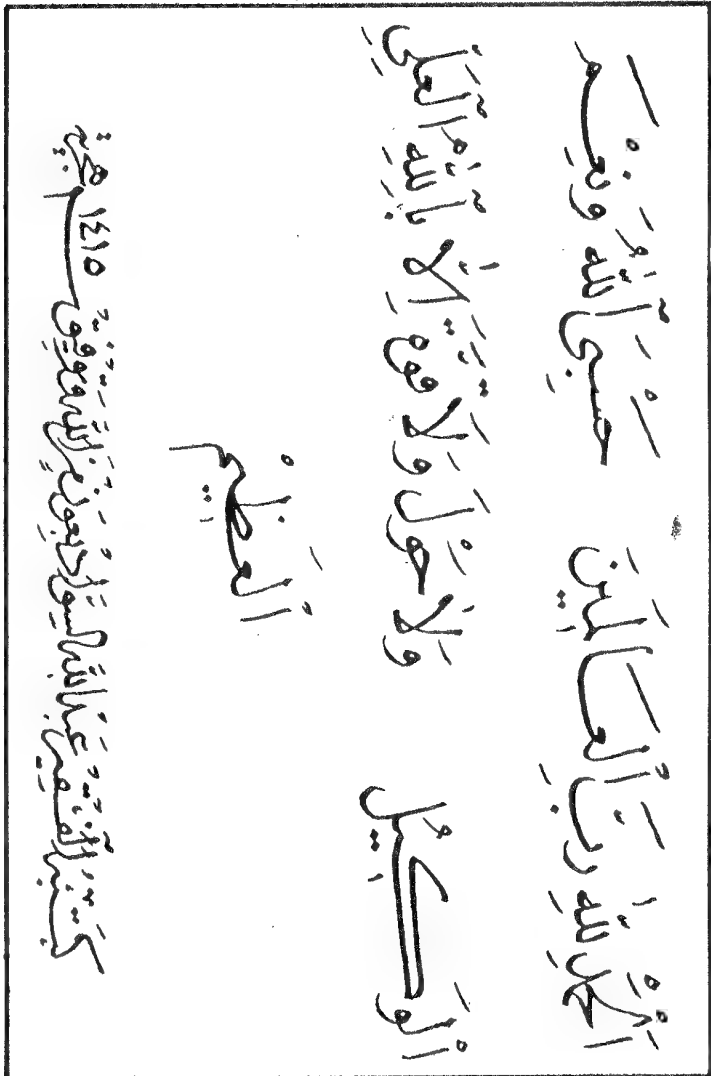 اَلْحَمْدُ لِلّٰهِ رَبِّ الْعَالَمِينَ حَسْبِيَ اللّٰهُ وَنِعْمَ
الْوَكِيلُ وَلَا حَوْلَ وَلَا قُوَّةَ إِلَّا بِاللّٰهِ الْعَلِيِّ
الْعَظِيمْ
كتبه الفقير عبد الله بعون من الله وتوفيق ١٤١٥ هجرية